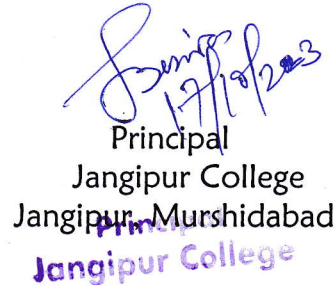 17/10/2023
Principal
Jangipur College
Jangipur, Murshidabad
Principal
Jangipur College